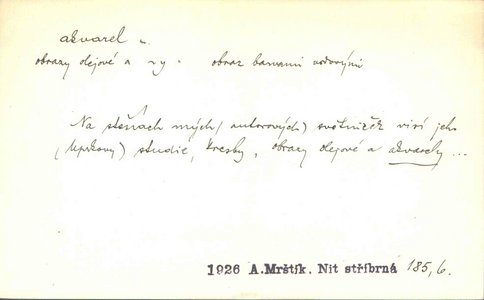 akvarel m.
obrazy olejové a ~y. obraz barvami vodovými
Na stěnách mých (autorových) světniček visí jeho
(Uprkovy) studie, kresby, obrazy olejové a akvarely ...
1926 A.Mrštík. Nit stříbrná 185,6.